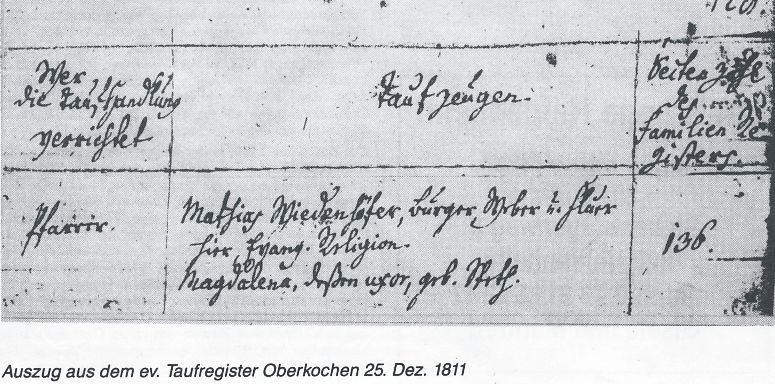 Wer
die Taufhandlung
verrichtet
Taufzeugen.
Seitenzahl
des
Familien Re-
gisters.
Pfarrer.
Mathias Wiedenhöfer, Burger, Weber u.
hier, Evang. Religion.
Magdalena, deßen uxor, geb.
136.
Auszug aus dem ev. Taufregister Oberkochen 25. Dez. 1811